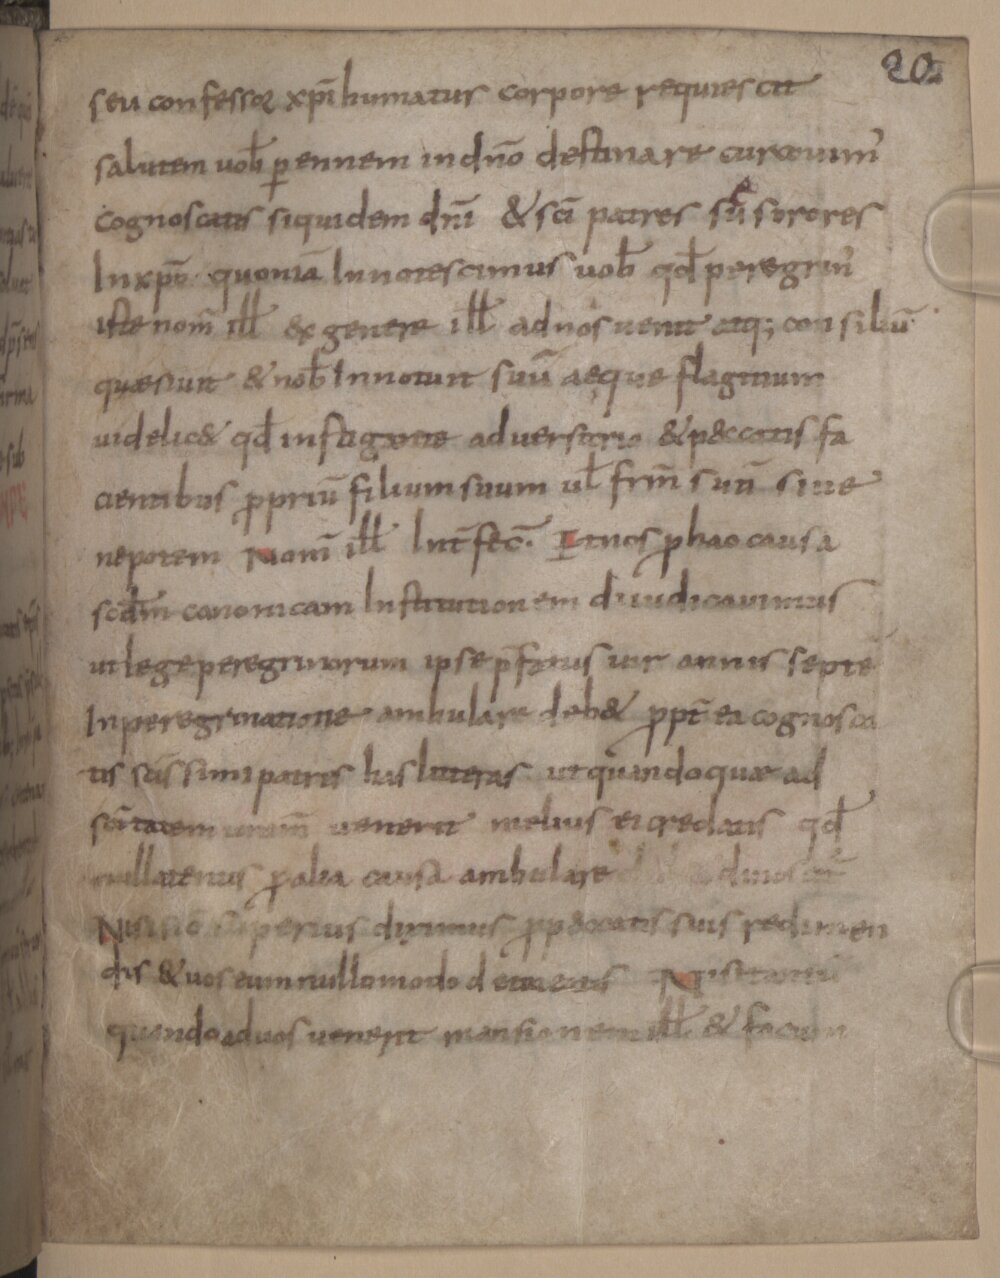 20
seu confessor xp̄i humatus corpore requiescit
salutem uob̄ ꝑennem in dn̄o destinare curauim᾽
cognoscatis siquidem dn̄i & sc̄i patres sū sorores
In xp̄o quoniā Innotescimus uob̄ qd̄ peregrin᾽
iste nom̄ ill̄ ex genere ill̄ ad nos uenit atq; consiliū
quæsiuit & nob̄ Innotuit suū aeque flagitium
uidelic& qd̄ instigante aduersario & p&catis fa
cientibus ꝓpriū filium suum ul̄ frm̄ suū siue
nepotem Nom̄ ill̄ Int̄fec̄. Et nos ꝓ hac causa
scdm̄ canonicam Institutionem diiudicauimus
ut lege peregrinorum ipse p̄fatus uir annis septē
In peregrinatione ambulare deb& ꝓpt̄ ea cognosca
tis sc̄issimi patris has litteras ut quandoquæ ad
sc̄itatem uram̄ uenerit melius ei credatis qd̄
nullatenus ꝓ alia causa ambulare dinoscit̄
Nisi sic̄ superius diximus ꝓ p&catis suis redimen
dis & uos eum nullomodo detineatis Nisi tantū
quando ad uos uenerit mansionem ill̄ & focum